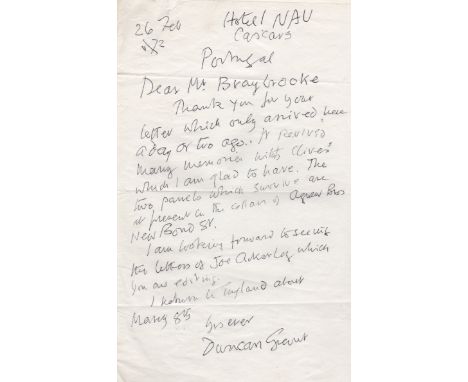 26 Feb Hotel NAU
Cascais
Portugal
Dear Mr Braybrooke
Thank you for your
letter which only arrived here
a day or two ago. It revived
many memories
which I am glad to have. The
two panels which survive are
at present in the cellars of Agnew Bros
New Bond St.
I am looking forward to seeing
the letters of Joe Ackerley which
you are editing.
I return to England about
March 8th
Duncan Grant